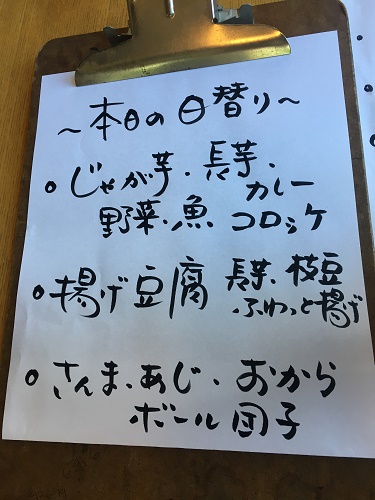 ～本日の日替り～
○じゃが芋、長芋、
カレー
野菜、魚 コロッケ
○揚げ豆腐 長芋、枝豆
ふわっと揚げ
○さんま、あじ、おから
ボール団子